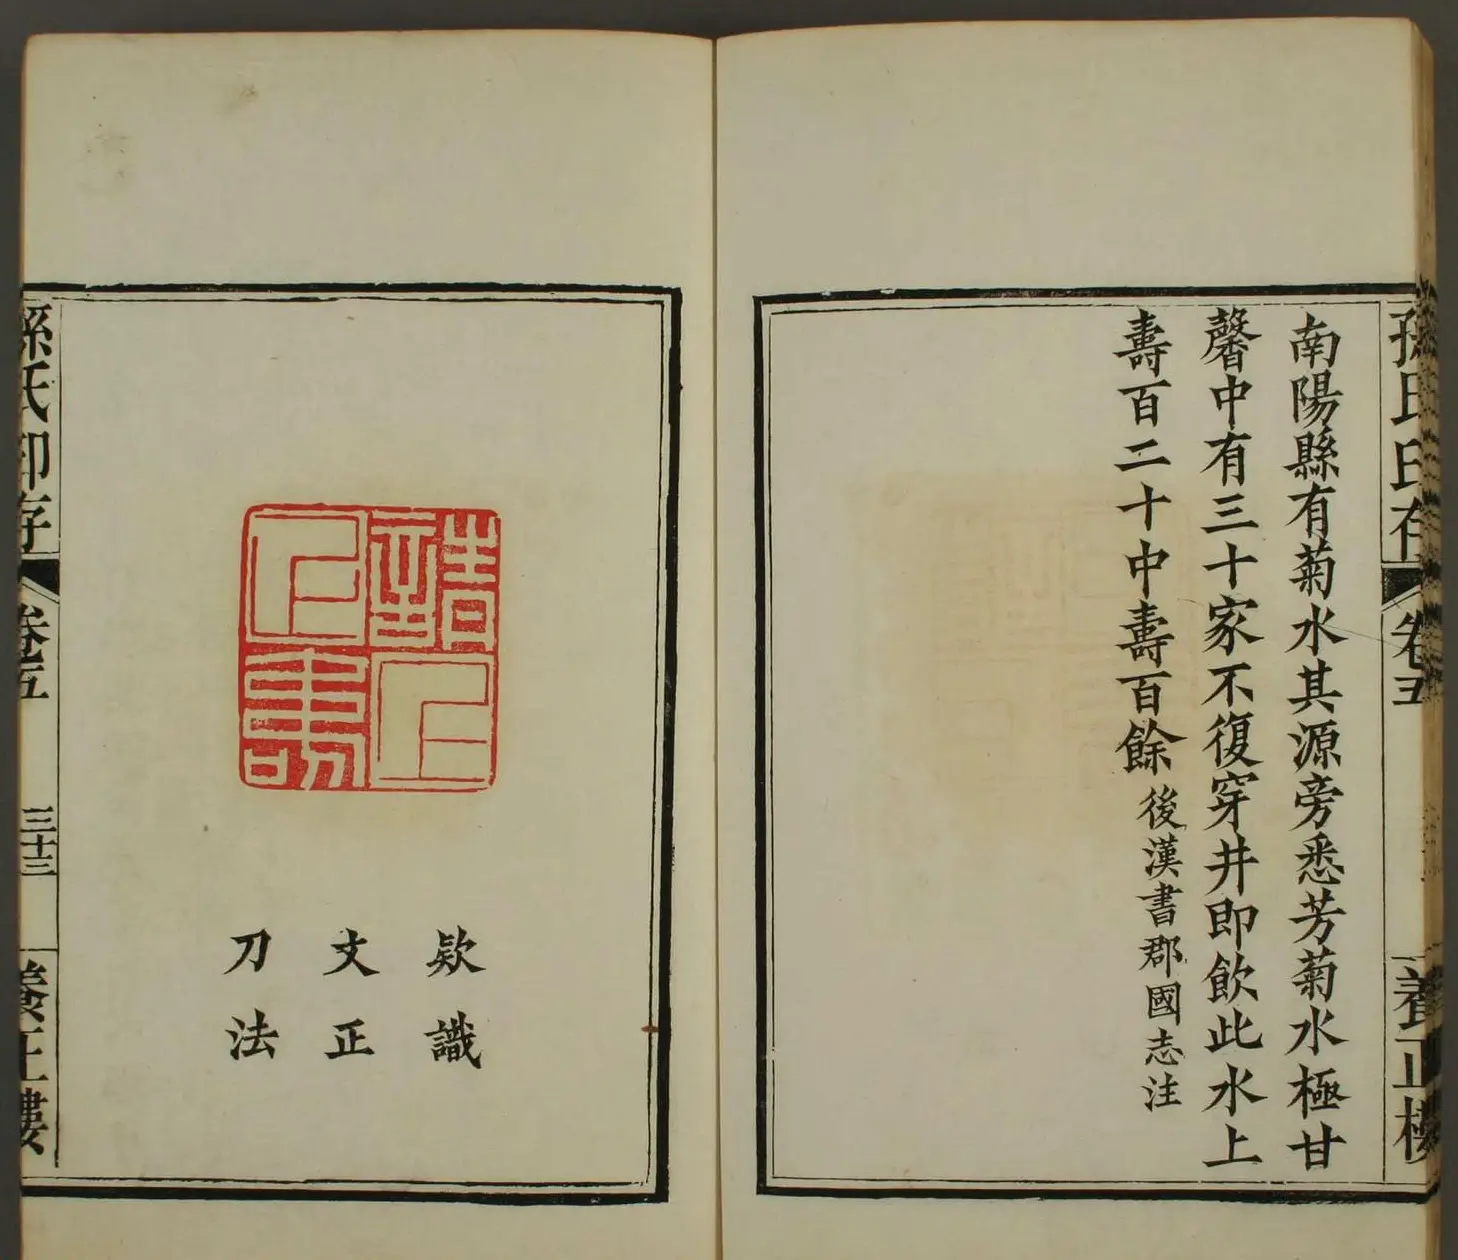 孫氏印存
卷五
養正樓
南陽縣有菊水其源旁悉芳菊水極甘
馨中有三十家不復穿井即飲此水上
壽百二十中壽百餘後漢書郡國志注
款識
文正
刀法
孫氏印存
卷五
三十三
養正樓